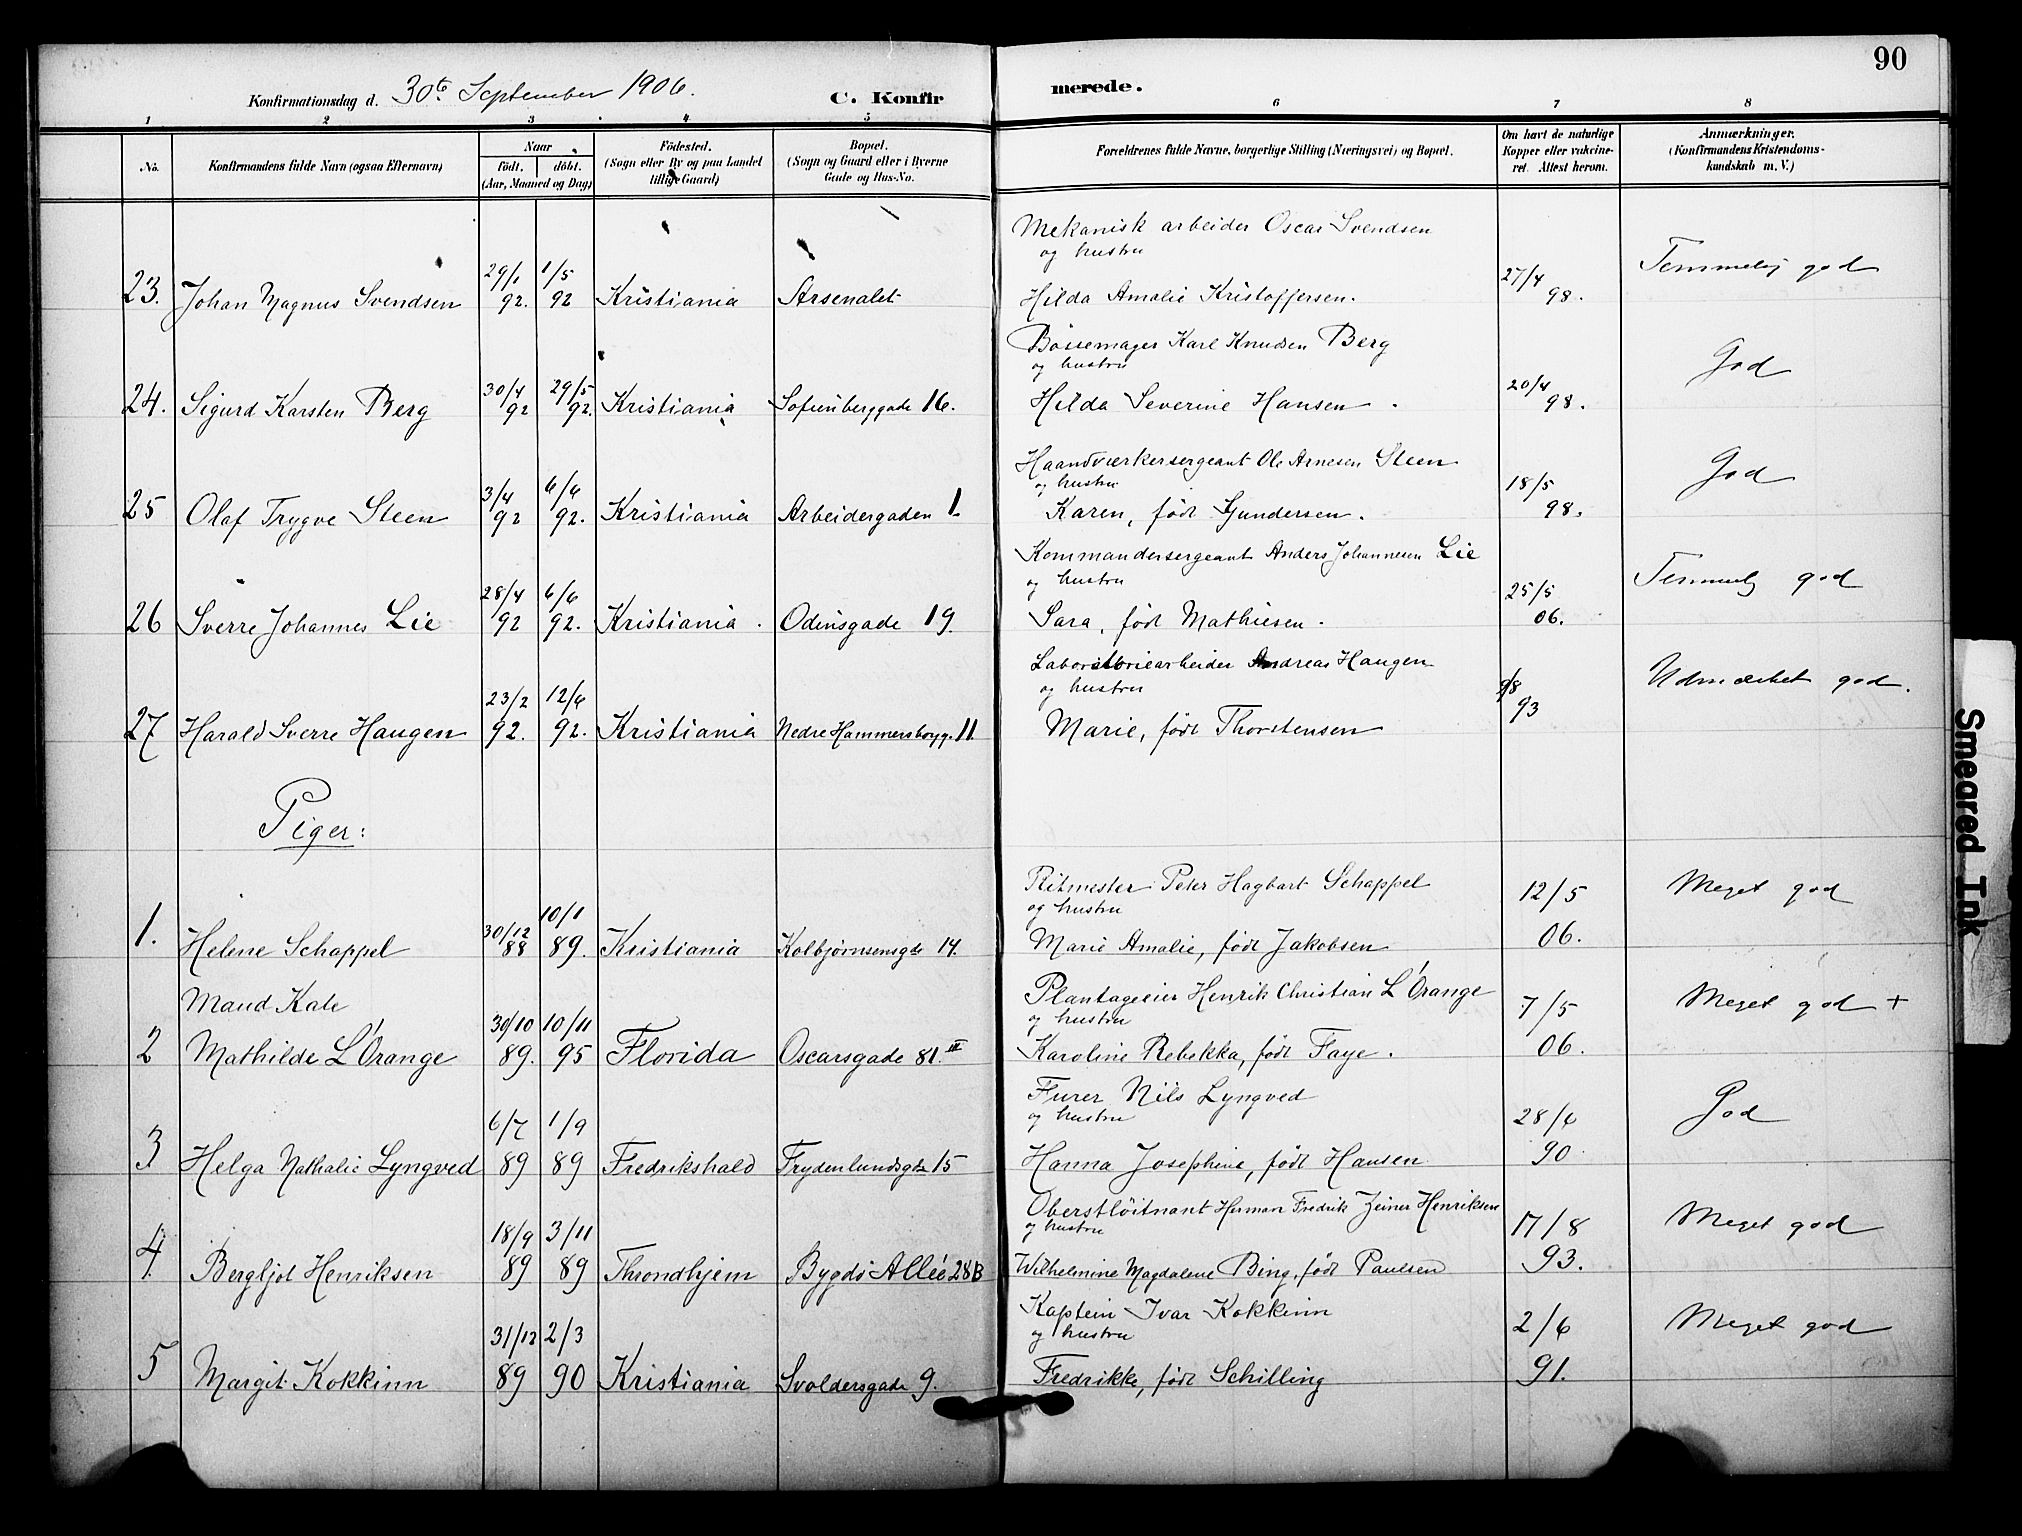 90
Konfirmationsdag d. 30te September 1906.
C. Konfirmerede.
1 2 3 4 5 6 7 8
No. Konfirmandens fulde Navn (ogsaa Efternavn) Naar født. døbt. (Aar, Maaned og Dag) Fødested. (Sogn eller By og paa Landet tillige Gaard) Bopæl. (Sogn og Gaard eller i Byerne Gade og Hus-No. Forældrenes fulde Navne, borgerlige Stilling (Næringsvei) og Bopæl. Om havt de naturlige Kopper eller vakcineret. Attest herom. Anmærkninger. (Konfirmandens Kristendomskundskab m. V.)
Mekanisk arbeider Oscar Svendsen
og hustru
23. Johan Magnus Svendsen 29/1 92. 1/5 92 Kristiania Arsenalet Hilda Amalie Kristoffersen. 27/4 98. Temmelig god
Bøssemager Karl Knudsen Berg
og hustru
24. Sigurd Karsten Berg 30/4 92 29/5 92. Kristiania Sofienberggade 16. Hilda Severine Hansen. 20/4 98. God
Haandværkersergeant Ole Arnesen Steen
og hustru
25 Olaf Trygve Steen 3/4 92 6/6 92. Kristiania Arbeidergaden 1. Karen, født Gundersen. 18/5 98. God
Kommandersergeant Anders Johannesen Lie
og hustru
26 Sverre Johannes Lie 28/4 92 6/6 92. Kristiania. Odinsgade 19. Sara, født Mathiesen. 25/5 06. Temmelig god
Laboratoriearbeider Andreas Haugen
og hustru
27 Harald Sverre Haugen 23/2 92. 12/6 92. Kristiania Nedre Hammersborgg. 11. Marie, født Thorstensen 9/8 93 Udmærket god.
Piger:
Ritmester Peter Hagbart Schappel
og hustru
1. Helene Schappel 30/12 88 10/1 89. Kristiania Kolbjørnsensgt 14. Marie Amalie, født Jakobsen 12/5 06. Meget god
Maud Kate
Plantageeier Henrik Christian L'Orange
og hustru
2 Mathilde L'Orange 30/10 89. 10/11 95 Florida Oscarsgade 81.III Karoline Rebekka, født Faye. 7/5 06. Meget god +
Furer Nils Lyngved
og hustru
3 Helga Nathalie Lyngved 6/7 89 1/9 89 Fredrikshald Frydenlundsgt 15 Hanna Josephine, født Hansen 28/6 90. God
Oberstløitnant Herman Fredrik Zeiner Henriksen
og hustru
4. Bergljot Henriksen 18/9 89 3/11 89 Throndhjem Bygdø Allée 28B Wilhelmine Magdalene Bing, født Paulsen 17/8 93. Meget god
Kaptein Ivar Kokkinn
og hustru
5 Margit Kokkinn 31/12 89 2/3 90 Kristiania Svoldersgade 9. Fredrikke, født Schilling 2/6 91. Meget god
Smeared Ink